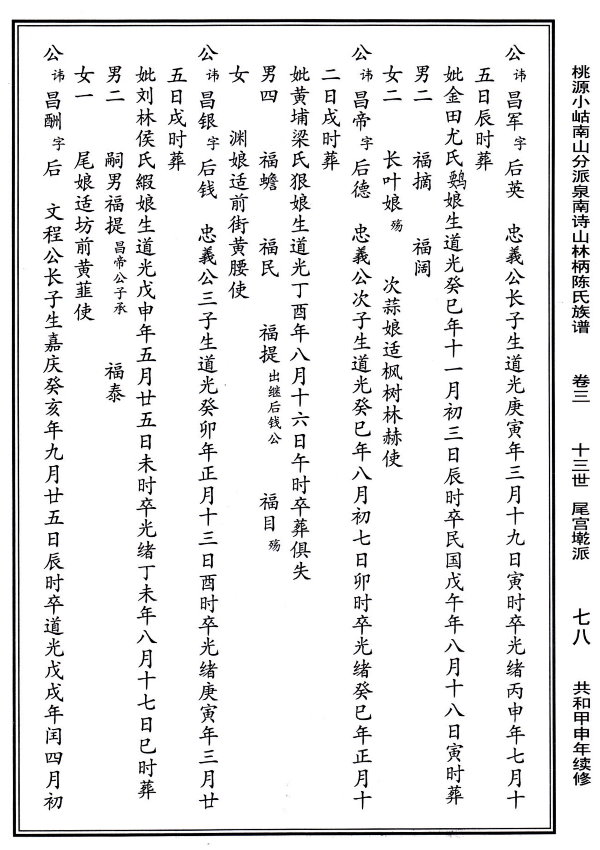 桃源小岵南山分派泉南诗山林柄陈氏族谱 卷三 十三世 尾宫墘派 七八 共和甲申年续修
公讳昌军字后英 忠義公长子生道光庚寅年三月十九日寅时卒光绪丙申年七月十
五日辰时葬
妣金田尤氏鹅娘生道光癸巳年十一月初三日辰时卒民国戊午年八月十八日寅时葬
男二 福摘 福阔
女二 长叶娘殇 次蒜娘适枫树林赫使
公讳昌帝字后德 忠義公次子生道光癸巳年八月初七日卯时卒光绪癸巳年正月十
二日戌时葬
妣黄埔梁氏狠娘生道光丁酉年八月十六日午时卒葬俱失
男四 福蟾 福民 福提出继后钱公 福目殇
女 渊娘适前街黄腰使
公讳昌银字后钱 忠義公三子生道光癸卯年正月十三日酉时卒光绪庚寅年三月廿
五日戌时葬
妣刘林侯氏緞娘生道光戊申年五月廿五日未时卒光绪丁未年八月十七日巳时葬
男二 嗣男福提昌帝公子承 福泰
女一 尾娘适坊前黄韮使
公讳昌酬字后 文程公长子生嘉庆癸亥年九月廿五日辰时卒道光戊戌年闰四月初